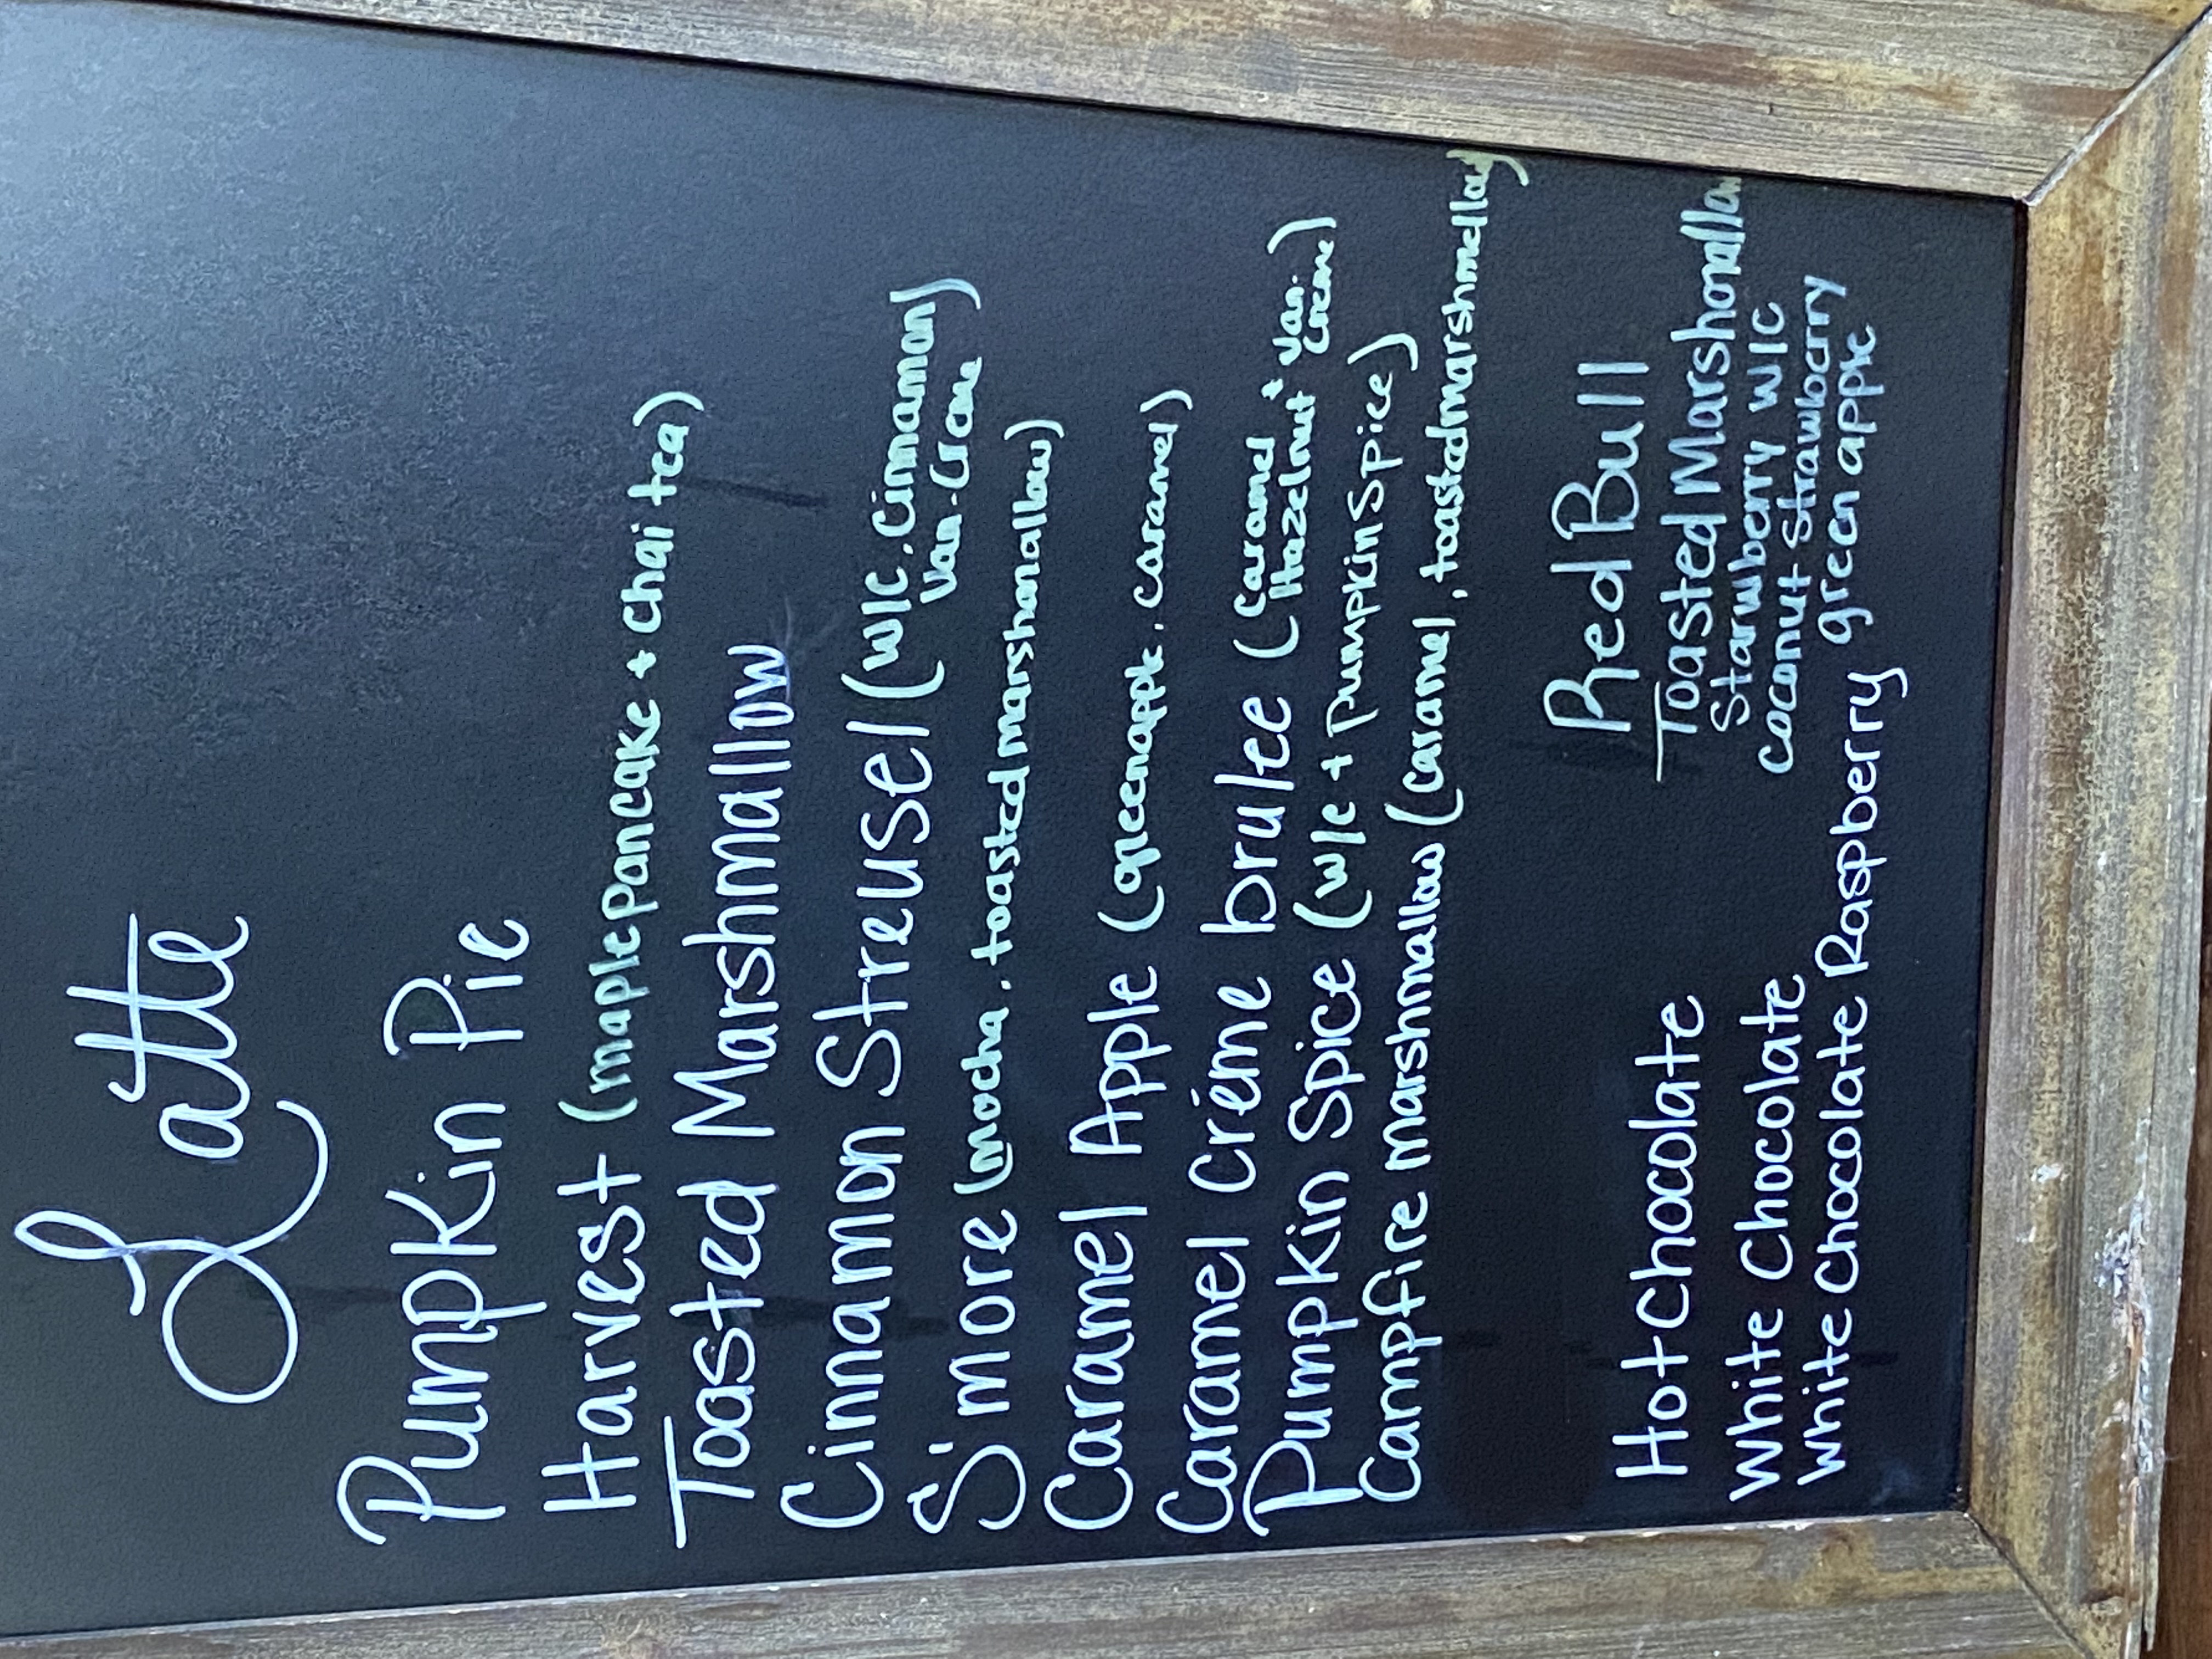 Latte
Pumpkin Pie
Harvest (maple pancake + chai tea)
Toasted Marshmallow
Cinnamon Streusel (W/C. Cinnamon)
Van-Creme
S'more (mocha. toasted marshmallow)
Caramel Apple (green apple. caramel)
Caramel Créme brulee (Caramel + van.
Hazelnut creme)
Pumpkin Spice (w/c + pumpkin Spice)
Campfire marshmallow (caramel, toasted marshmellow)
Hot Chocolate
White Chocolate
White Chocolate Raspberry
Red Bull
Toasted Marshmallow
Starwberry W/C
Coconut Strawberry
green apple